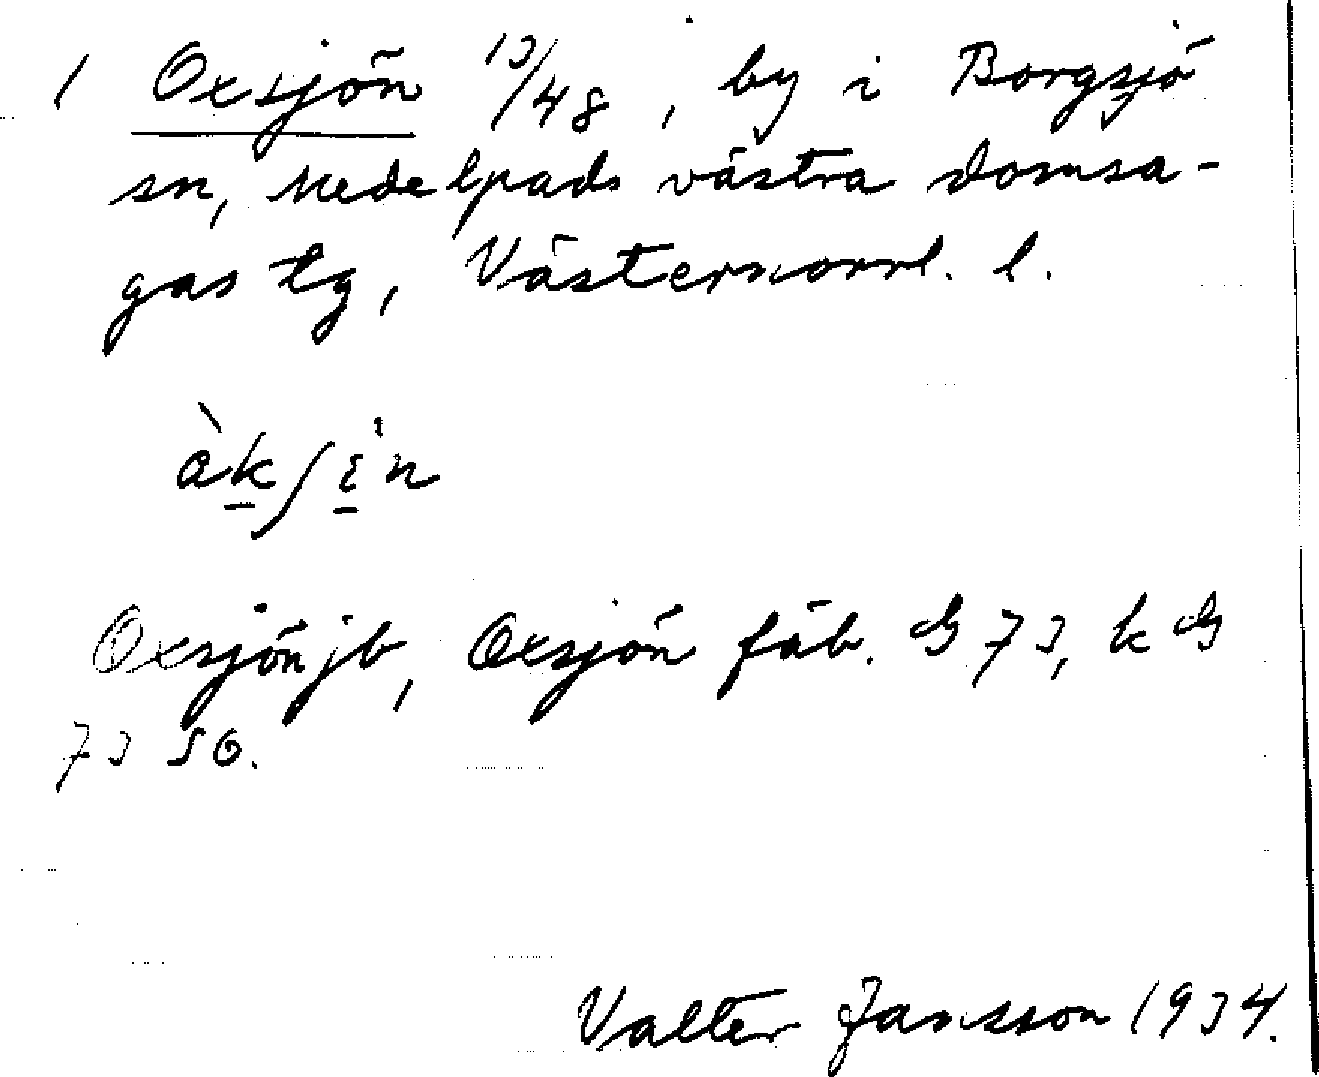 1 Oxsjön 13/48, by i Borgsjö
sn, Medelpads västra domsa-
gas tg, Västernorrl. l.
Oxsjön jb, Oxsjön fäb. G 73, k G
73 SO.
Valter Jansson 1934.